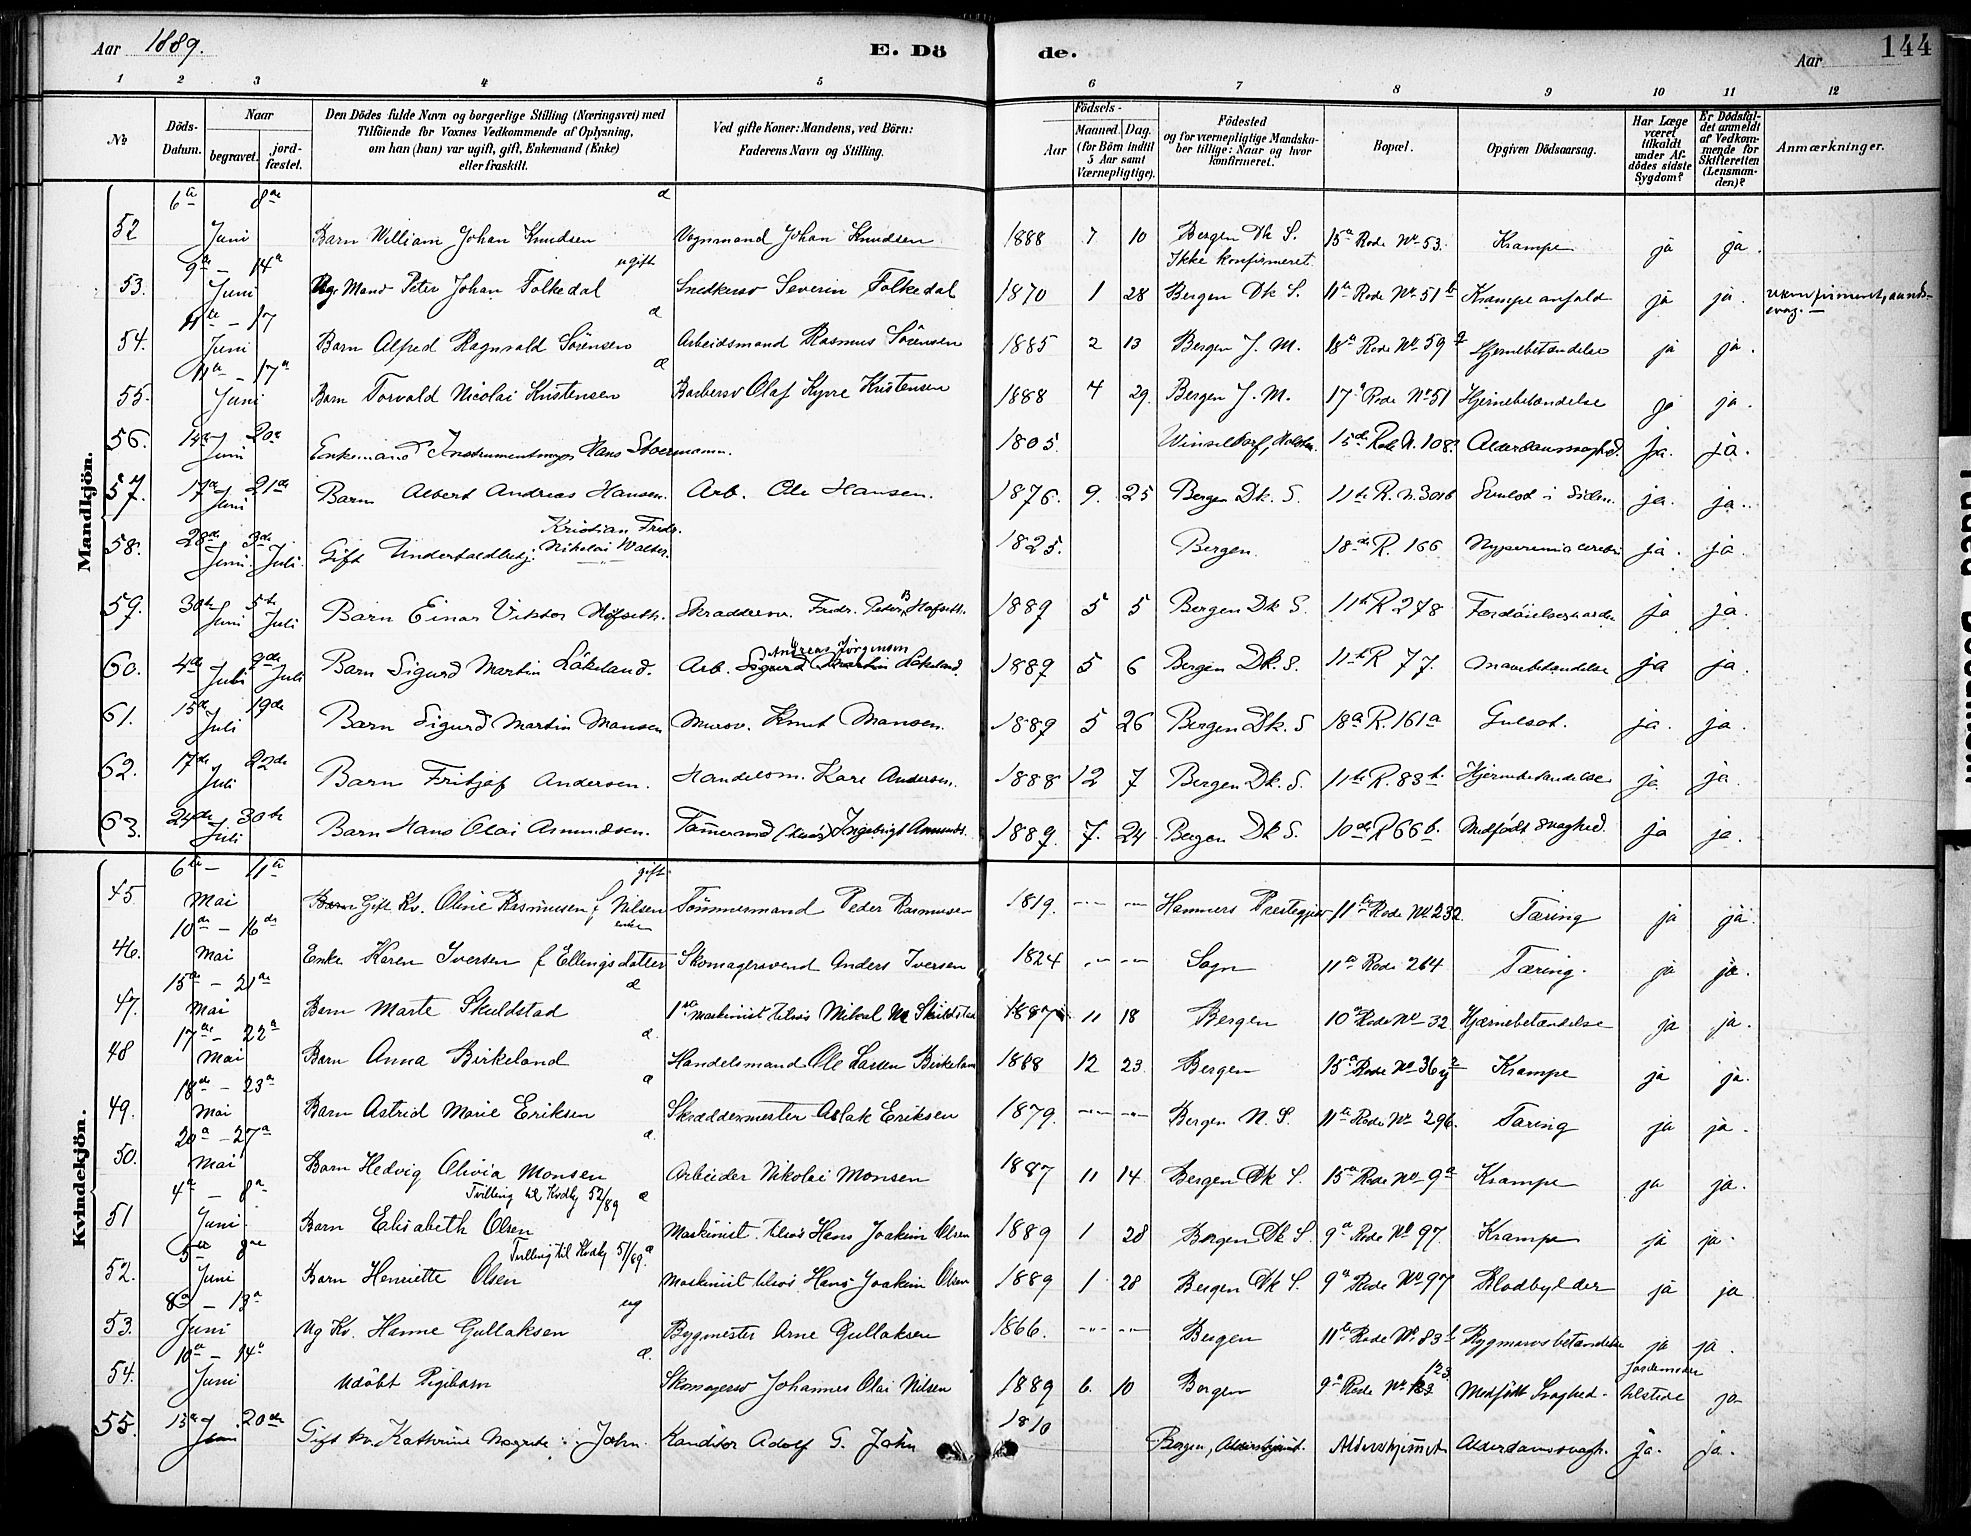 Aar 1889. E. Dö de. Aar 144
1 2 3 4 5 6 7 8 9 10 11 12
№
Döds-Datum.
Naar
begravet. jordfæstet.
Den Dödes fulde Navn og borgerlige Stilling (Næringsvei) med
Tilföiende for Voxnes Vedkommende af Oplysning,
om han (hun) var ugift, gift, Enkemand (Enke)
eller fraskilt.
Ved gifte Koner: Mandens, ved Börn:
Faderens Navn og Stilling.
Födsels-
Aar
Maaned. Dag.
(for Börn indtil
5 Aar samt
Værnepligtige).
Födested
og for værnepligtige Mandskaber tillige: Naar og hvor
konfirmeret.
Bopæl.
Opgiven Dödsaarsag.
Har Læge
været
tilkaldt
under Afdödes sidste
Sygdom?
Er Dödsfaldet anmeldt
af Vedkommende for
Skifteretten
(Lensmanden)?
Anmærkninger.
Mandkjön.
52 6te Juni 8de Barn William Johan Knudsen Vognmand Johan Knudsen 1888 7 10 Bergen Dk S. 15a Rode No 53. Krampe ja ja
53. 9de – 14de Juni ugift Ug. Mand Peter Johan Folkedal Snedkersv Severin Folkedal 1870 1 28 Ikke konfirmeret Bergen Dk S. 11te Rode No 51b Krampeanfald ja ja.
54. 11te – 17 Juni Barn Alfred Ragnvald Sörensen Arbeidsmand Rasmus Sörensen 1885 2 13 Bergen J. M. 18de Rode No 59a Hjernebetændelse ja ja.
55. 11te – 17de Juni Barn Torvald Nicolai Kristensen Barbersv Olaf Kyrre Kristensen 1888 4 29. Bergen J. M. 17de Rode No 51 Hjernebetændelse ja ja.
56. 14de Juni 20de Enkemand Instrumentmager Hans Stoermann. 1805 15de Rode N. 108. Alderdomssvaghed. ja. ja.
57. 17de Juni 21de Barn Albert Andreas Hansen. Arb. Ole Hansen. 1876. 9. 25 Bergen Dk. S. 11te R. N. 301b i Siden. ja. ja.
58. 28de Juni 3de Juli Gift Kristian Fredr. Nikolai Walter. 1825. Bergen. 18de R. 166 Hyperemia cerebri ja. ja.
59. 30te Juni 5te Juli Barn Einar Viktor Hofseth. Skraddersv. Fredr. Peter B Hofseth. 1889 5 5 Bergen Dk S. 11te R 278 ja ja.
60. 4de Juli 9de Juli Barn Sigurd Martin Låkeland. Arb. Andreas Jörgensen Sigurd Martin Låkeland. 1889 5 6 Bergen Dk. S. 11te R 77. Mavebetændelse ja ja.
61. 15de Juli 19de Barn Sigurd Martin Mansen Mursv. Knut Mansen. 1889 5 26 Bergen Dk. S 18de R. 161a Gulsot. ja. ja.
62. 17de Juli 22de Barn Fritjof Andersen. Handelsm. Kare Andersen. 1888 12 7 Bergen Dk. S. 11te R. 83b. Hjernebetændelse ja ja.
63. 24de Juli 30te Barn Hans Olai Amundsen. Tömmermd Ingebrigt Amunds. 1889. 7. 24 Bergen Dk S. 10de R 66b. Medfödt svaghed. ja ja.
Kvindekjön.
45 6te – 11te Mai gift Barn Gift Kv. Oline Rasmussen f Nilsen Tömmermand Peder Rasmussen 1819. Hammers Prestegjeld 11te Rode No 232 Tæring ja ja.
46. 10de – 16de Mai enke Enke Karen Iversen f Ellingsdatter Skomagersvend Anders Iversen 1824 Sogn 11te Rode 264 Tæring. ja ja.
47. 15de – 21de Mai Barn Marte Skuldstad 1ste Maskinist tilsös Mikal M Skuldstad 1887 11 18 Bergen 10de Rode No 32 Hjærnebetændelse ja ja.
48 17de – 22de Mai Barn Anna Birkeland Handelsmand Ole Larsen Birkeland 1888 12 23 Bergen 15de Rode No 36 Krampe ja ja.
49. 18de – 23de Mai Barn Astrid Marie Eriksen Skræddermester Aslak Eriksen 1879. Bergen N. S. 11te Rode No 296. Tæring ja ja.
50. 20de – 27de Mai Barn Hedvig Olivia Monsen Arbeider Nikolai Monsen 1887 11 14 Bergen Dk S. 15de Rode No 9a Krampe ja ja.
51 4de – 8de Juni Tvilling til Kvdkj 52/89 Barn Elisabeth Olsen Maskinist tilsös Hans Joakim Olsen 1889 1 28 Bergen Dk S. 9de Rode No 97. Krampe ja ja.
52. 5te 9de Juni Tvilling til Kvdkj 51/89. Barn Henriette Olsen Maskinist tilsös Hans Joakim Olsen 1889 1 28 Bergen Dk S. 9de Rode No 97 Blodbylder ja ja
53. 8de – 13de Juni ug Ug Kv. Hanne Gullaksen Bygmester Arne Gullaksen 1866. Bergen 11te Rode No 83b Rygmarvsbetændelse ja ja.
54. 10de – 14de Juni Udöbt Pigebarn Skomagersv Johannes Olai Nilsen 1889 6. 10 Bergen 9de Rode No 123 Medfödt Svaghed. Jordemoder tilstede ja
55. 13de Juni 20de Gift kv. Kathrine Margrete John. Konditor Adolf G. John 1810 Bergen, Aldershjemmet. Alderdomssvagh. ja. ja.